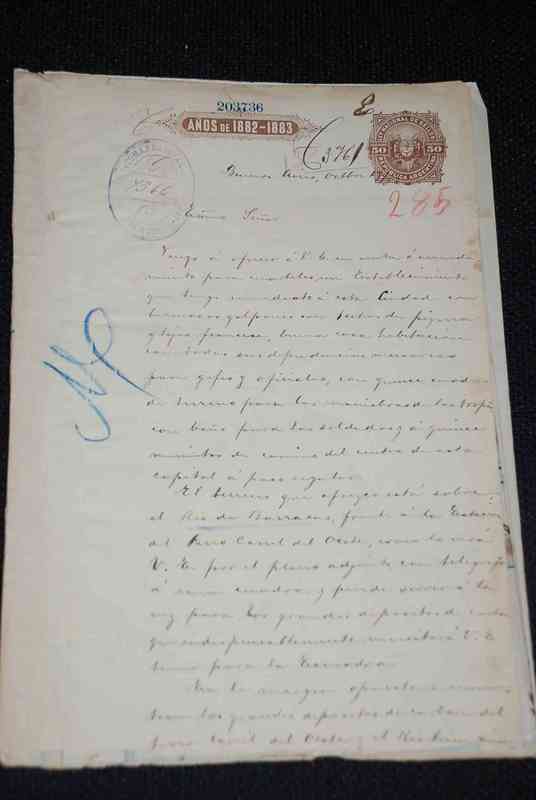 203736
AÑOS DE 1882-1883
E
C 3761
50 50
REPUBLICA ARGENTINA
Buenos Aires, Octbre
285
Exmo Señor
Vengo á ofrecer á V. E. en venta ó arrenda
miento para cuarteles, un Establecimiento
que tengo inmediato á esta Ciudad con
hermosos galpones con techos de
y teja francesa, buena casa habitacion
con todas sus dependencias necesarias
para gefes y oficiales, con quince cuadras
de terreno para las maniobras de las tropas
con baño para los soldados y á quince
minutos de camino del centro de esta
capital á paso regular.
El terreno que ofrezco está sobre
el Rio de Barracas, frente á la Estacion
del Ferro Carril del Oeste, como lo verá
V. E. por el plano adjunto con telegrafo
á cuadras y puede servir á la
vez para los grandes depositos de
que indispensablemente necesitará V. E.
para la Escuadra.
En la margen opuesta
los grandes depositos de del
Ferro Carril del Oeste y el Riachuelo